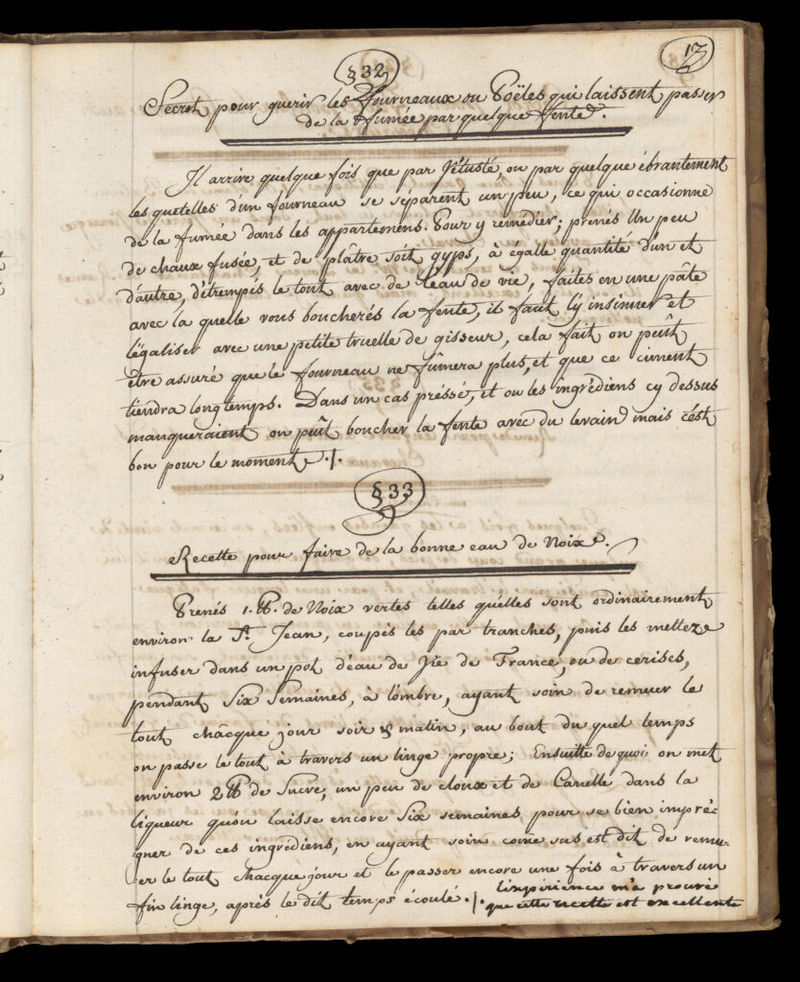 17
§ 32
Secret pour guerir les fourneaux ou Poëles qui laissent passer
de la fumée par quelque fente.
Il arrive quelque fois que par Vétusté, ou par quelque ébranlement
les quetelles d'un fourneau se séparent un peu, ce qui occasionne
de la fumée dans les appartemens. Pour y remedier; prenés Un peu
de chaux fusée, et de plâtre soit gyps, à égalle quantité d'un et
d'autre, d'étrempés le tout avec de l'eau de vie, faites en une pâte
avec la quelle vous boucherés la fente, il faut l'y insinuer et
l'ëgaliser avec une petite truelle de gisseur, cela fait on peût
être assuré que le fourneau ne fûmera plus, et que ce ciment
tiendra longtemps. Dans un cas préssé, et ou les ingrédiens cy dessus
manqueraient on pût boucher la fente avec du levain mais c'ést
bon pour le moment ./.
§ 33
Recette pour faire de la bonne eau de Noix.
Prenés 1. ℔. de Noix vertes telles qu'elles sont ordinairement
environ la St. Jean, coupés les par tranches, puis les mettez
infuser dans un pot d'eau de Vie de France, ou de cerises,
pendant Six Semaines, à l'ombre, ayant soin de remuer le
tout châcque jour soir & matin, au bout du quel temps
on passe le tout à travers un linge propre; Ensuitte de quoi on met
environ 2 ℔ de Sucre, un peu de cloux et de Canelle dans la
liqueur qu'on laisse encore Six semaines pour se bien impré-
gner de ces ingrédiens, en ayant soin come sus est dit de remu-
er le tout chacque jour et le passer encore une fois à travers un
fin linge, après le dit temps écoulé ./.
l'expérience m'a prouvé
que cette recette est excellente